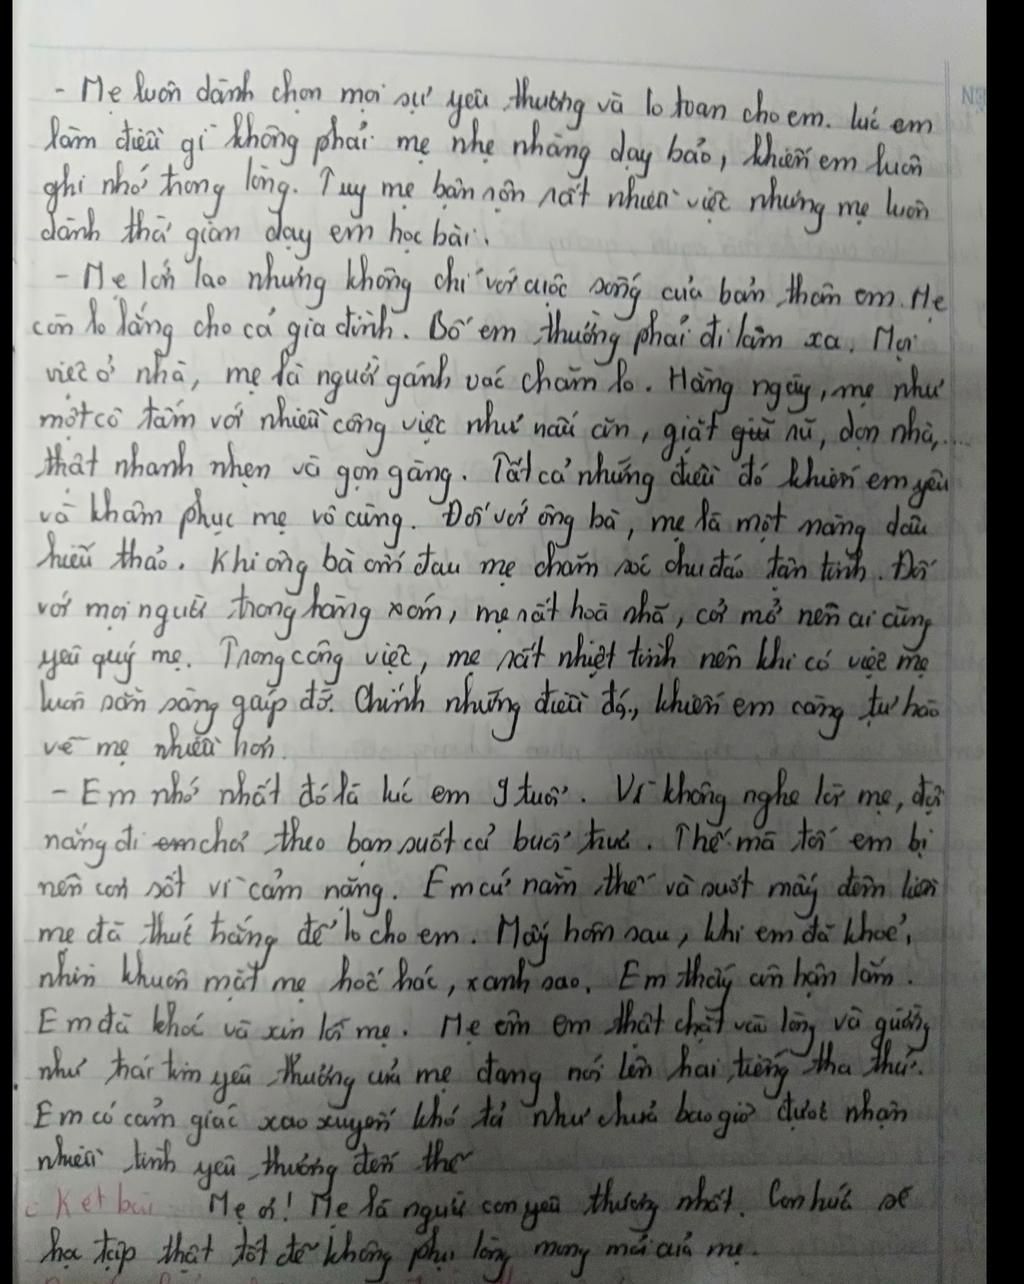 - Mẹ luôn dành chọn mọi sự yêu thương và lo toan cho em. lúc em
làm điều gì không phải mẹ nhẹ nhàng dạy bảo, khiến em luôn
ghi nhớ trong lòng. Tuy mẹ bận rộn rất nhiều việc nhưng mẹ luôn
dành thời gian dạy em học bài.
- Mẹ lớn lao nhưng không chỉ với cuộc sống của bản thân em. Mẹ
còn lo lắng cho cả gia đình. Bố em thường phải đi làm xa. Mọi
việc ở nhà, mẹ là người gánh vác chăm lo. Hàng ngày, mẹ như
một cô tấm với nhiều công việc như nấu ăn, giặt giũ rũ, dọn nhà,...
thật nhanh nhẹn và gọn gàng. Tất cả những điều đó khiến em yêu
và khâm phục mẹ vô cùng. Đối với ông bà, mẹ là một nàng dâu
hiếu thảo. Khi ông bà ốm đau mẹ chăm sóc chu đáo tận tình. Đối
với mọi người trong hàng xóm, mẹ rất hoà nhã, cởi mở nên ai cũng
yêu quý mẹ. Trong công việc, mẹ rất nhiệt tình nên khi có việc mẹ
luôn sẵn sàng gaíp đỡ. Chính những điều đó, khiến em càng tự hào
về mẹ nhiều hơn.
- Em nhớ nhất đó là lúc em 9 tuổi. Vì không nghe lời mẹ, đội
nắng đi em chơi theo bạn suốt cả buổi trưa. Thế mà tối em bị
nên cơn sốt vì cảm nắng. Em cứ nằm thế và suốt mấy đêm liền
mẹ đã thức trắng để lo cho em. Mấy hôm sau, khi em đã khoẻ,
nhìn khuôn mặt mẹ hốc hác, xanh sao. Em thấy ân hận lắm.
Em đã khóc và xin lỗi mẹ. Mẹ ôm em thật chặt vào lòng và giường
như trái tim yêu thương của mẹ đang nói lên hai tiếng tha thứ.
Em có cảm giác xao xuyến khó tả như chưa bao giờ được nhận
nhiều tình yêu thương đến thế
c Kết bài Mẹ ơi! Mẹ là người con yêu thương nhất. Con hứa sẽ
học tập thật tốt để không phụ lòng mong mỏi của mẹ.